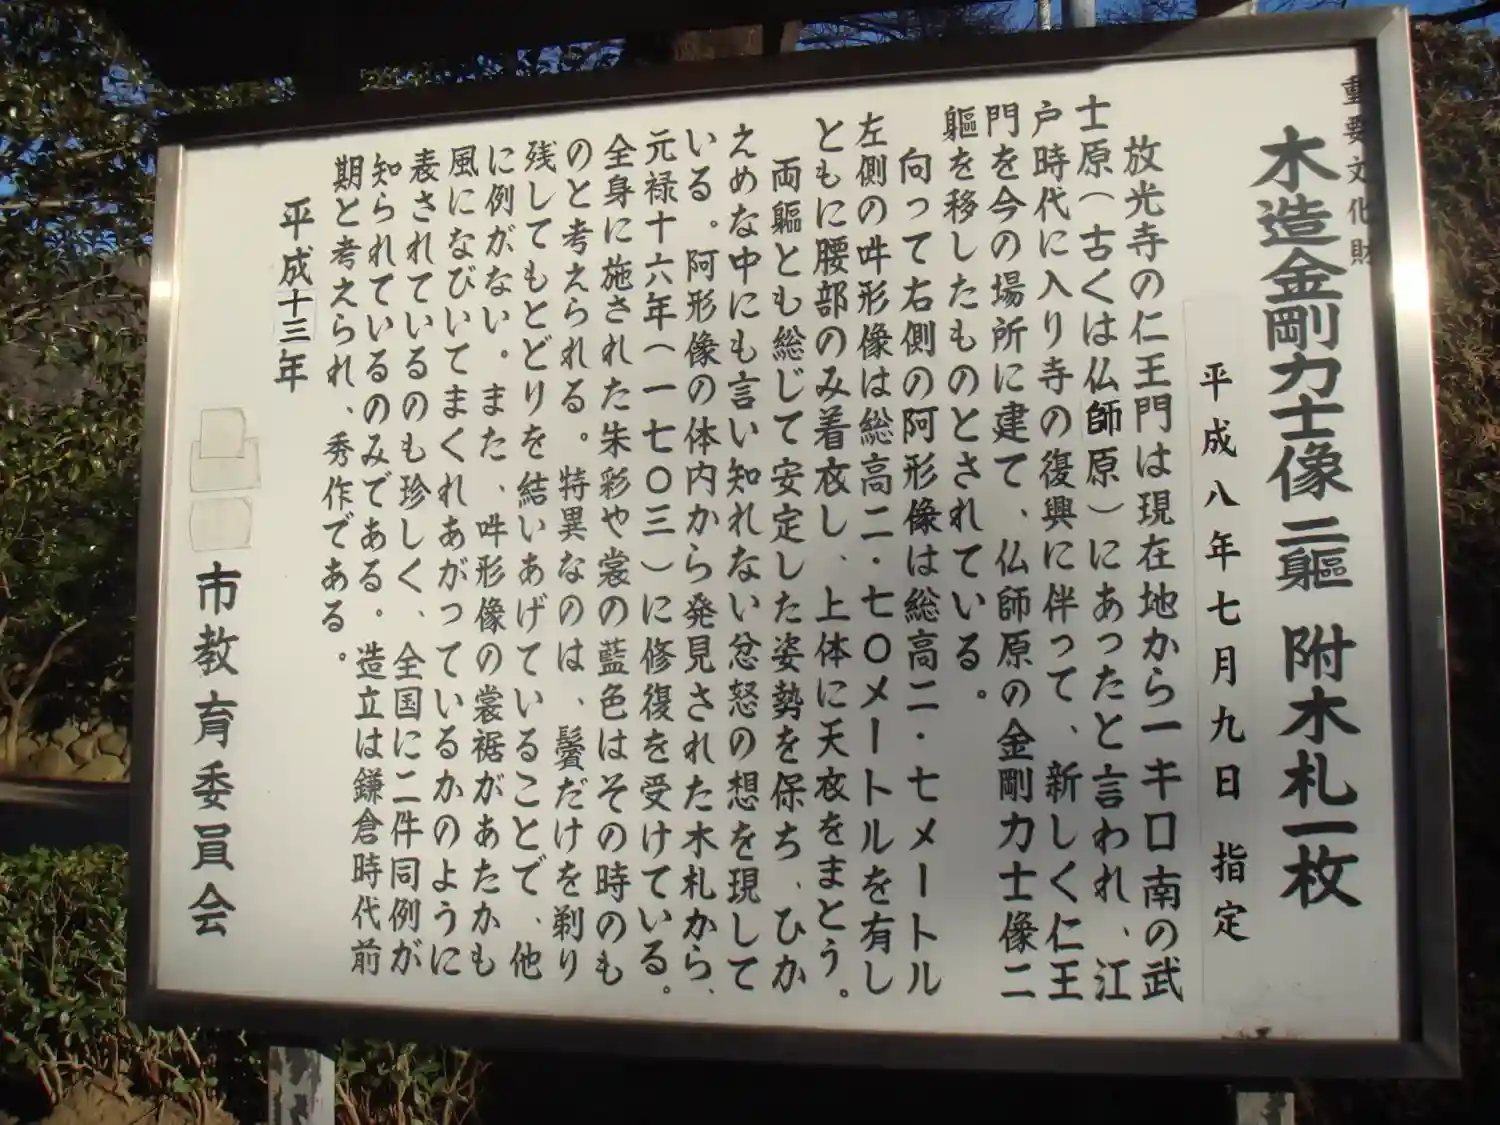 重要文化財
木造金剛力士像 二軀 附木札一枚
平成八年七月九日 指定
放光寺の仁王門は現在地から一キロ南の武
士原(古くは仏師原)にあったと言われ、江
戸時代に入り寺の復興に伴って、新しく仁王
門を今の場所に建て、仏師原の金剛力士像二
軀を移したものとされている。
向って右側の阿形像は総高二・七メートル
左側の吽形像は総高二・七〇メートルを有し
ともに腰部のみ着衣し、上体に天衣をまとう。
両軀とも総じて安定した姿勢を保ち、ひか
えめな中にも言い知れない忿怒の想を現して
いる。阿形像の体内から発見された木札から、
元禄十六年(一七〇三)に修復を受けている。
全身に施された朱彩や裳の藍色はその時のも
のと考えられる。特異なのは、鬢だけを剃り
残してもとどりを結いあげていることで、他
に例がない。また、吽形像の裳裾があたかも
風になびいてまくれあがっているかのように
表されているのも珍しく、全国に二件同例が
知られているのみである。造立は鎌倉時代前
期と考えられ、秀作である。
平成十三年
市教育委員会